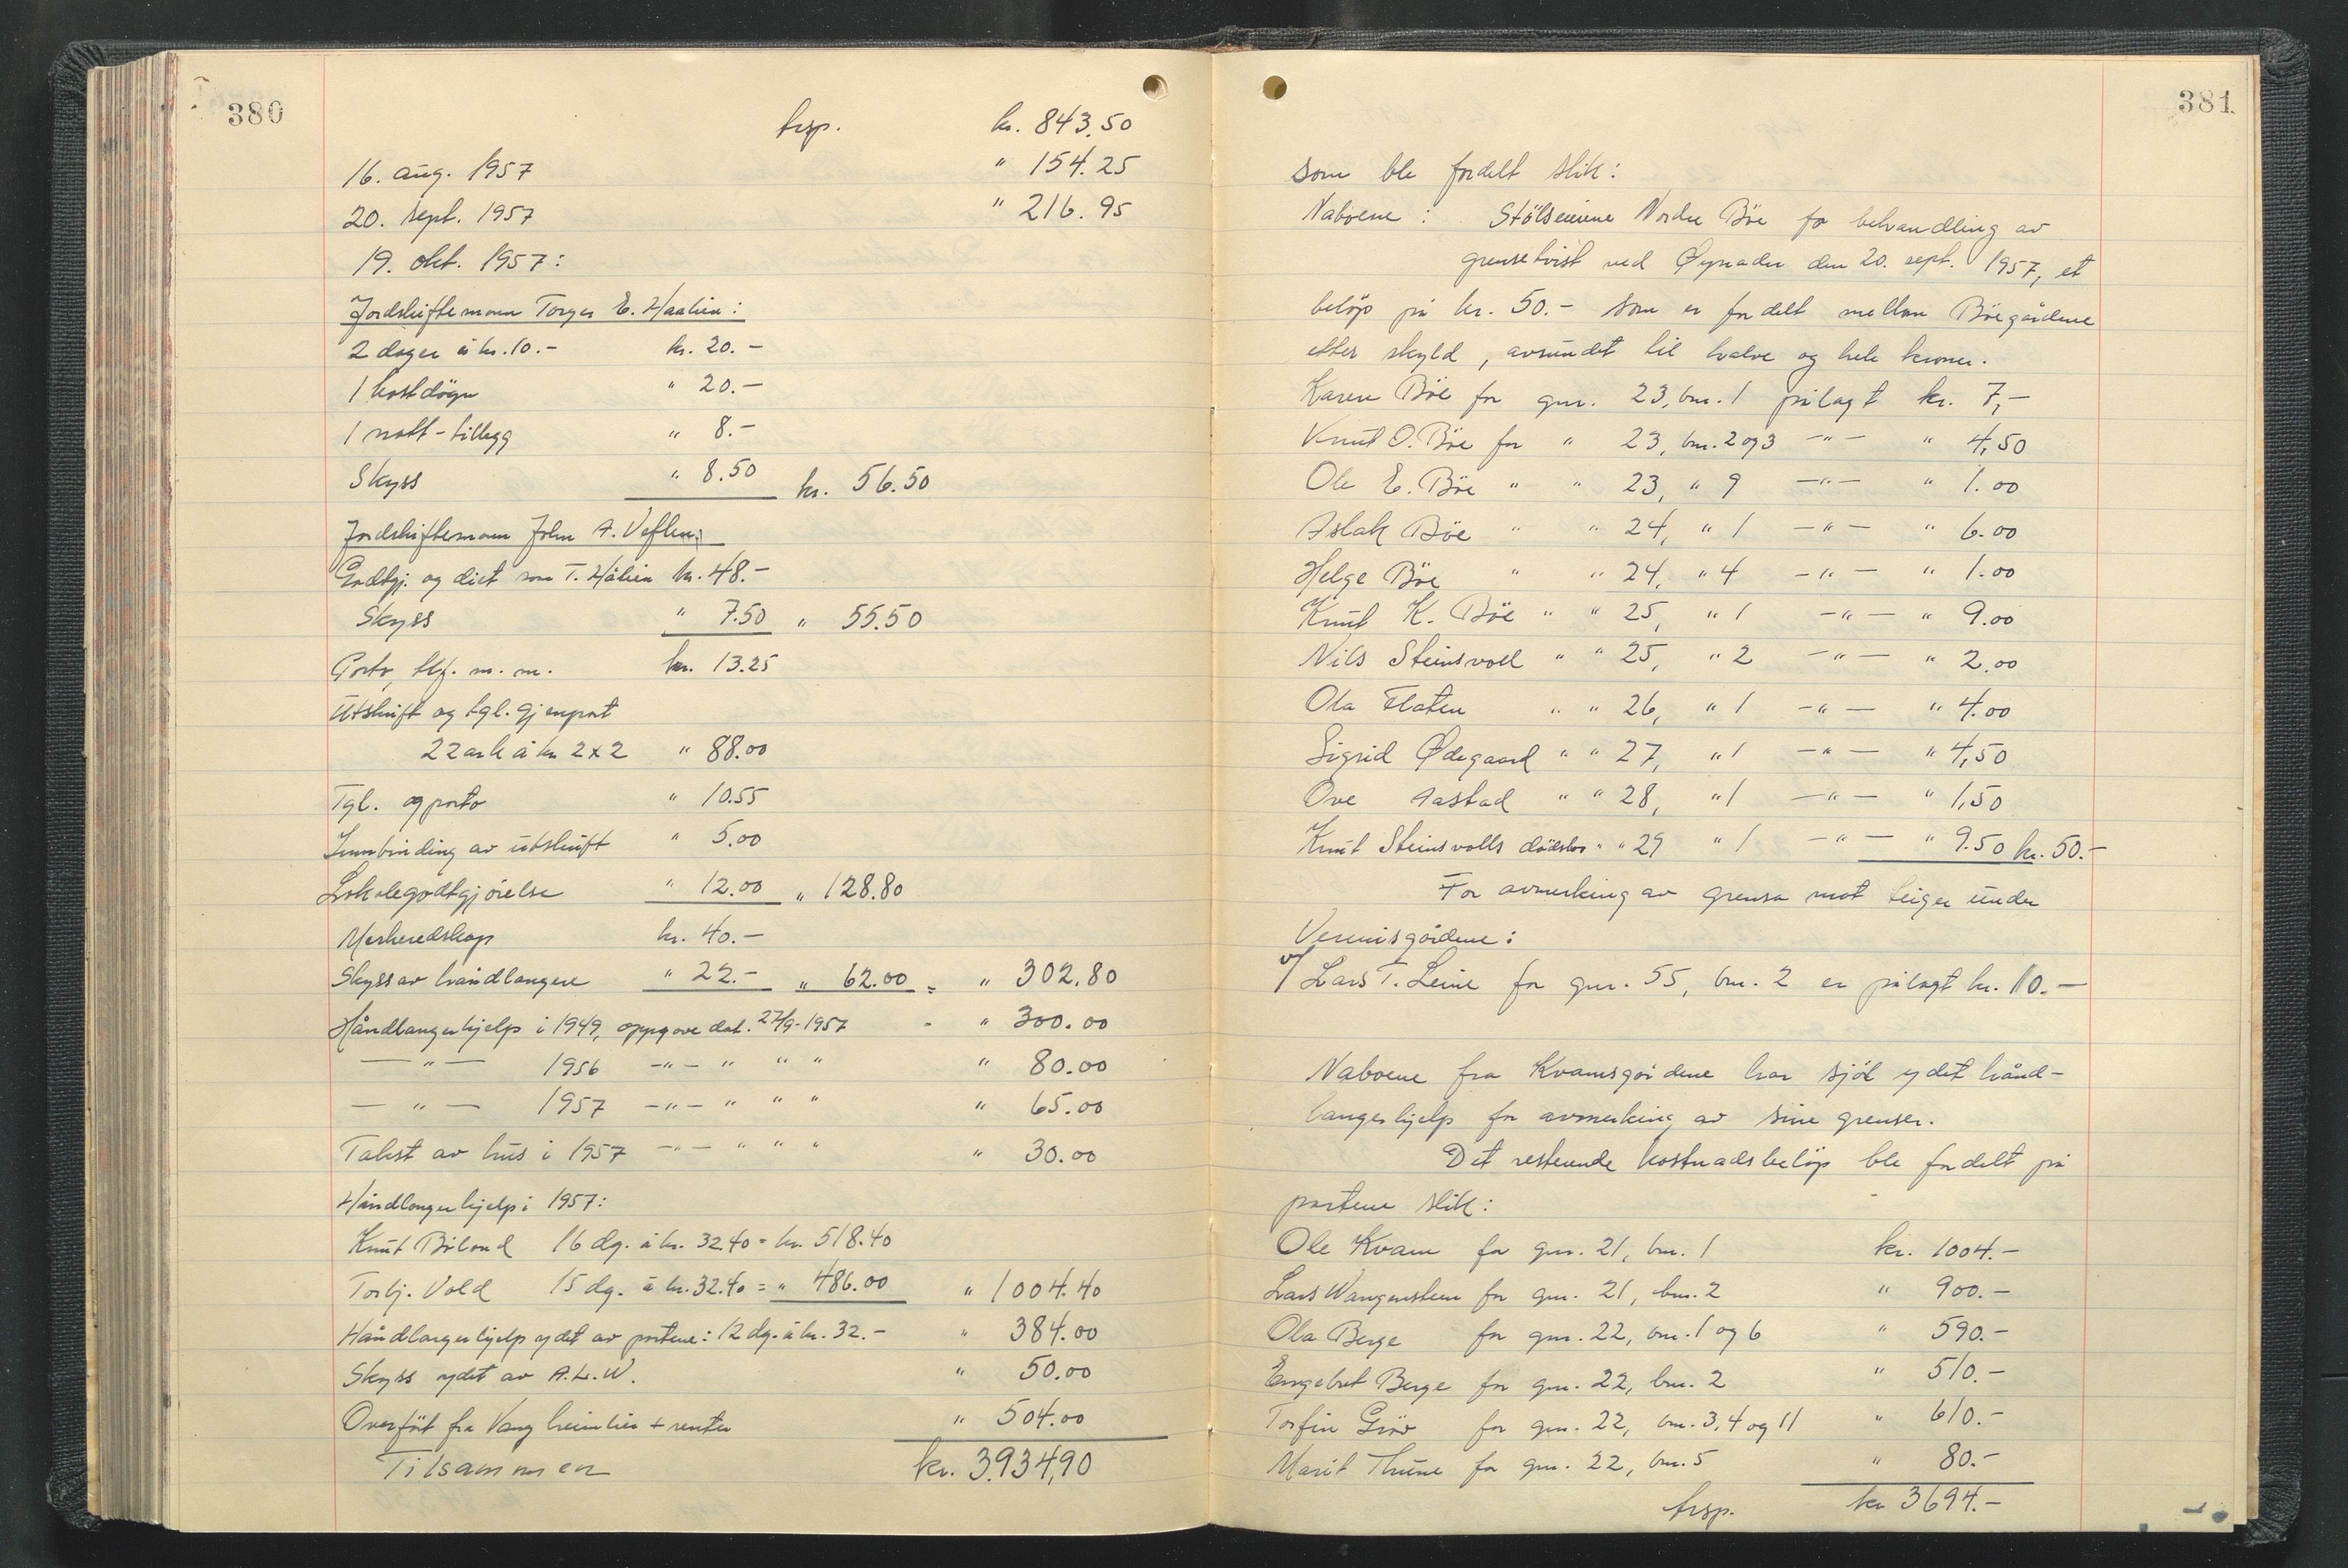 380
trsp. kr. 843.50
16. aug. 1957 " 154.25
20. sept. 1957 " 216.95
19. okt. 1957:
Jordskiftemann Torger E. Haalien:
2 dager à kr. 10.- kr. 20.-
1 kostdøgn " 20.-
1 natt-tillegg " 8.-
Skyss " 8.50 kr. 56.50
Jordskiftemann John A. Veflen:
Godtgj. og diet som T. Hålien kr. 48.-
Skyss " 7.50 " 55.50
Porto, tlf. m. m. kr. 13.25
Utskrift og tgl. gjenpart
22 ark à kr 2x2 " 88.00
Tgl. og porto " 10.55
Innbinding av utskrift " 5.00
Lokalegodtgjörelse " 12.00 " 128.80
Merkeredskap kr. 40.-
Skyss av håndlangere " 22.- " 62.00 = " 302.80
Håndlangerhjelp i 1949, oppgave dat. 27/9-1957 - " 300.00
— " — 1956 -"- " " " " 80.00
— " — 1957 -"- " " " " 65.00
Takst av hus i 1957 -"- " " " " 30.00
Håndlangerhjelp i 1957:
Knut Båland 16 dg. à kr. 32.40 = kr. 518.40
Torbj. Vold 15 dg. à kr. 32.40 = " 486.00 " 1004.40
Håndlangerhjelp ydet av partene: 12 dg. à kr. 32.- " 384.00
Skyss ydet av A.L.W. " 50.00
Overfört fra Vang heimlier + renter " 504.00
Tilsammen kr. 3934,90
381
som ble fordelt slik:
Naboene: Stölseierne Nordre Böe for behandling av
grensetvist ved Öynadn den 20. sept. 1957, et
belöp på kr. 50.- som er fordelt mellom Böegårdene
etter skyld, avrundet til halve og hele kroner.
Karen Böe for gnr. 23, bnr. 1 pålagt kr. 7,-
Knut O. Böe for " 23, bnr. 2 og 3 -"- " 4,50
Ole E. Böe " " 23, " 9 -"- " 1.00
Aslak Böe " " 24, " 1 -"- " 6.00
Helge Böe " " 24, " 4 -"- " 1.00
Knut K. Böe " " 25, " 1 -"- " 9.00
Nils Steinsvoll " " 25, " 2 -"- " 2.00
Ola Flaten " " 26, " 1 -"- " 4.00
Sigrid Ødegaard " " 27, " 1 -"- " 4,50
Ove Aastad " " 28, " 1 -"- " 1,50
Knut Steinsvolls dödsbo " " 29 " 1 -"- " 9.50 kr. 50.-
For avmerking av grensa mot teiger under
Vennisgårdene:
v/ Lars T. Leine for gnr. 55, bnr. 2 er pålagt kr. 110.-
Naboene fra Kvamsgårdene har sjöl ydet hånd-
langerhjelp for avmerking av sine grenser.
Det resterende kostnadsbelöp ble fordelt på
partene slik:
Ole Kvam for gnr. 21, bnr. 1 kr. 1004.-
Lars Wangensteen for gnr. 21, bnr. 2 " 900.-
Ola Berge for gnr. 22, bnr. 1 og 6 " 590.-
Engebret Berge for gnr. 22, bnr. 2 " 510.-
Torfin Gröv for gnr. 22, bnr. 3, 4 og 11 " 610.-
Marit Thune for gnr. 22, bnr. 5 " 80.-
trsp. kr 3694.-